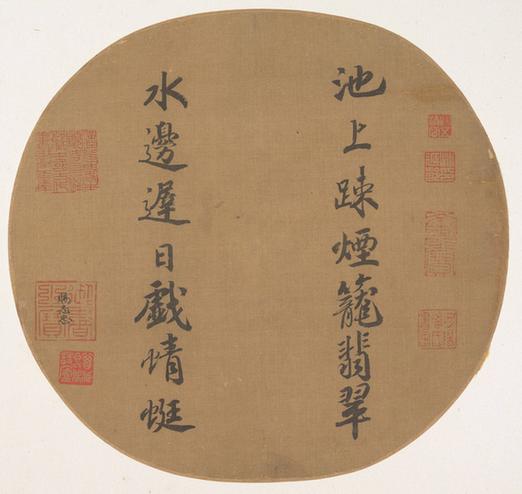 池上踈煙籠翡翠
水邊遲日戯蜻蜓